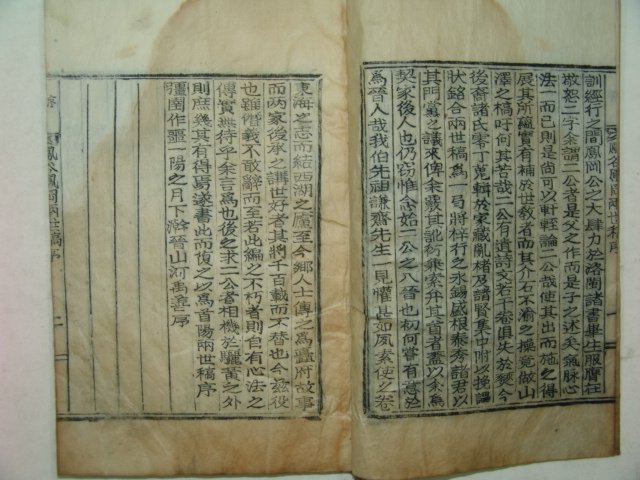 訓經行之閭鳳岡公之大肆力於洛閩諸書畢生服膺在
敬恕二字余謂二公者是父之作而是子之述矣氣脉心
法一而已則是尙可以軒輊論二公哉使其出而施之得
展其所蘊實有補於世教者而其介石不渝之操竟倣山
澤之槁吁何其苦哉二公有遺詩文若干卷俱失於燹今
後裔諸氏零丁蒐輯於家藏亂楮及諸賢集中附以挽誄
狀銘合兩世稿爲一局將梓行之永錫盛根泰秀諸君以
其門黨之議來俾余覈其訛衍乘索弁其首者蓋以余爲
契家後人也仍窃惟念始二公之入晉也初何嘗有意於
爲晉人哉我伯先祖謙齋先生一見懽甚如夙素使之卷
東海之志而結西湖之廬至今鄕人士傳之爲豐府故事
而两家後承之講世好者其將千百載而不替也今玆役
也雖僭義不敢辭而至若此編之不朽者則自有心法之
傳實無待乎余言爲也後之求二公者相機於驪黃之外
則庶幾其有得焉遂書此而復之以爲首陽兩世稿序
彊圉作噩一陽之月下澣晉山河禹善序
鳳谷鳳岡兩世稿序